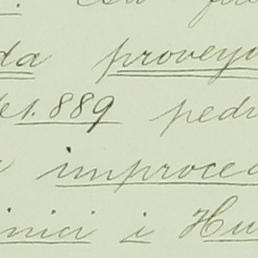 da proveyo
t. 889 ped
improced
inici i Hu